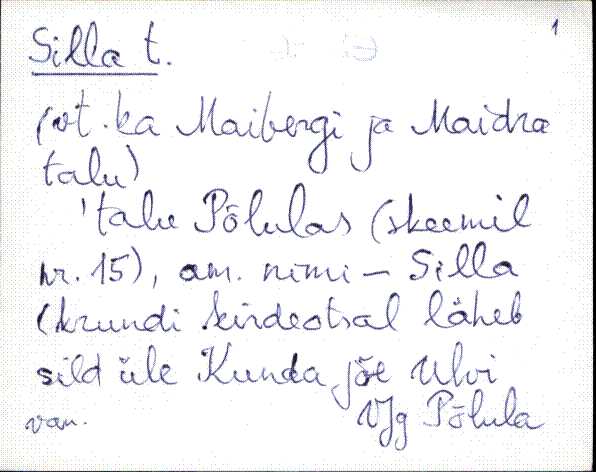 1
Silla t.
(vt. ka Maibergi ja Maidra
talu)
'talu Põlulas (skeemil
nr. 15), am. nimi – Silla
(krundi kirdeotsal läheb
sild üle Kunda jõe Ulvi
van. VJg Põlula